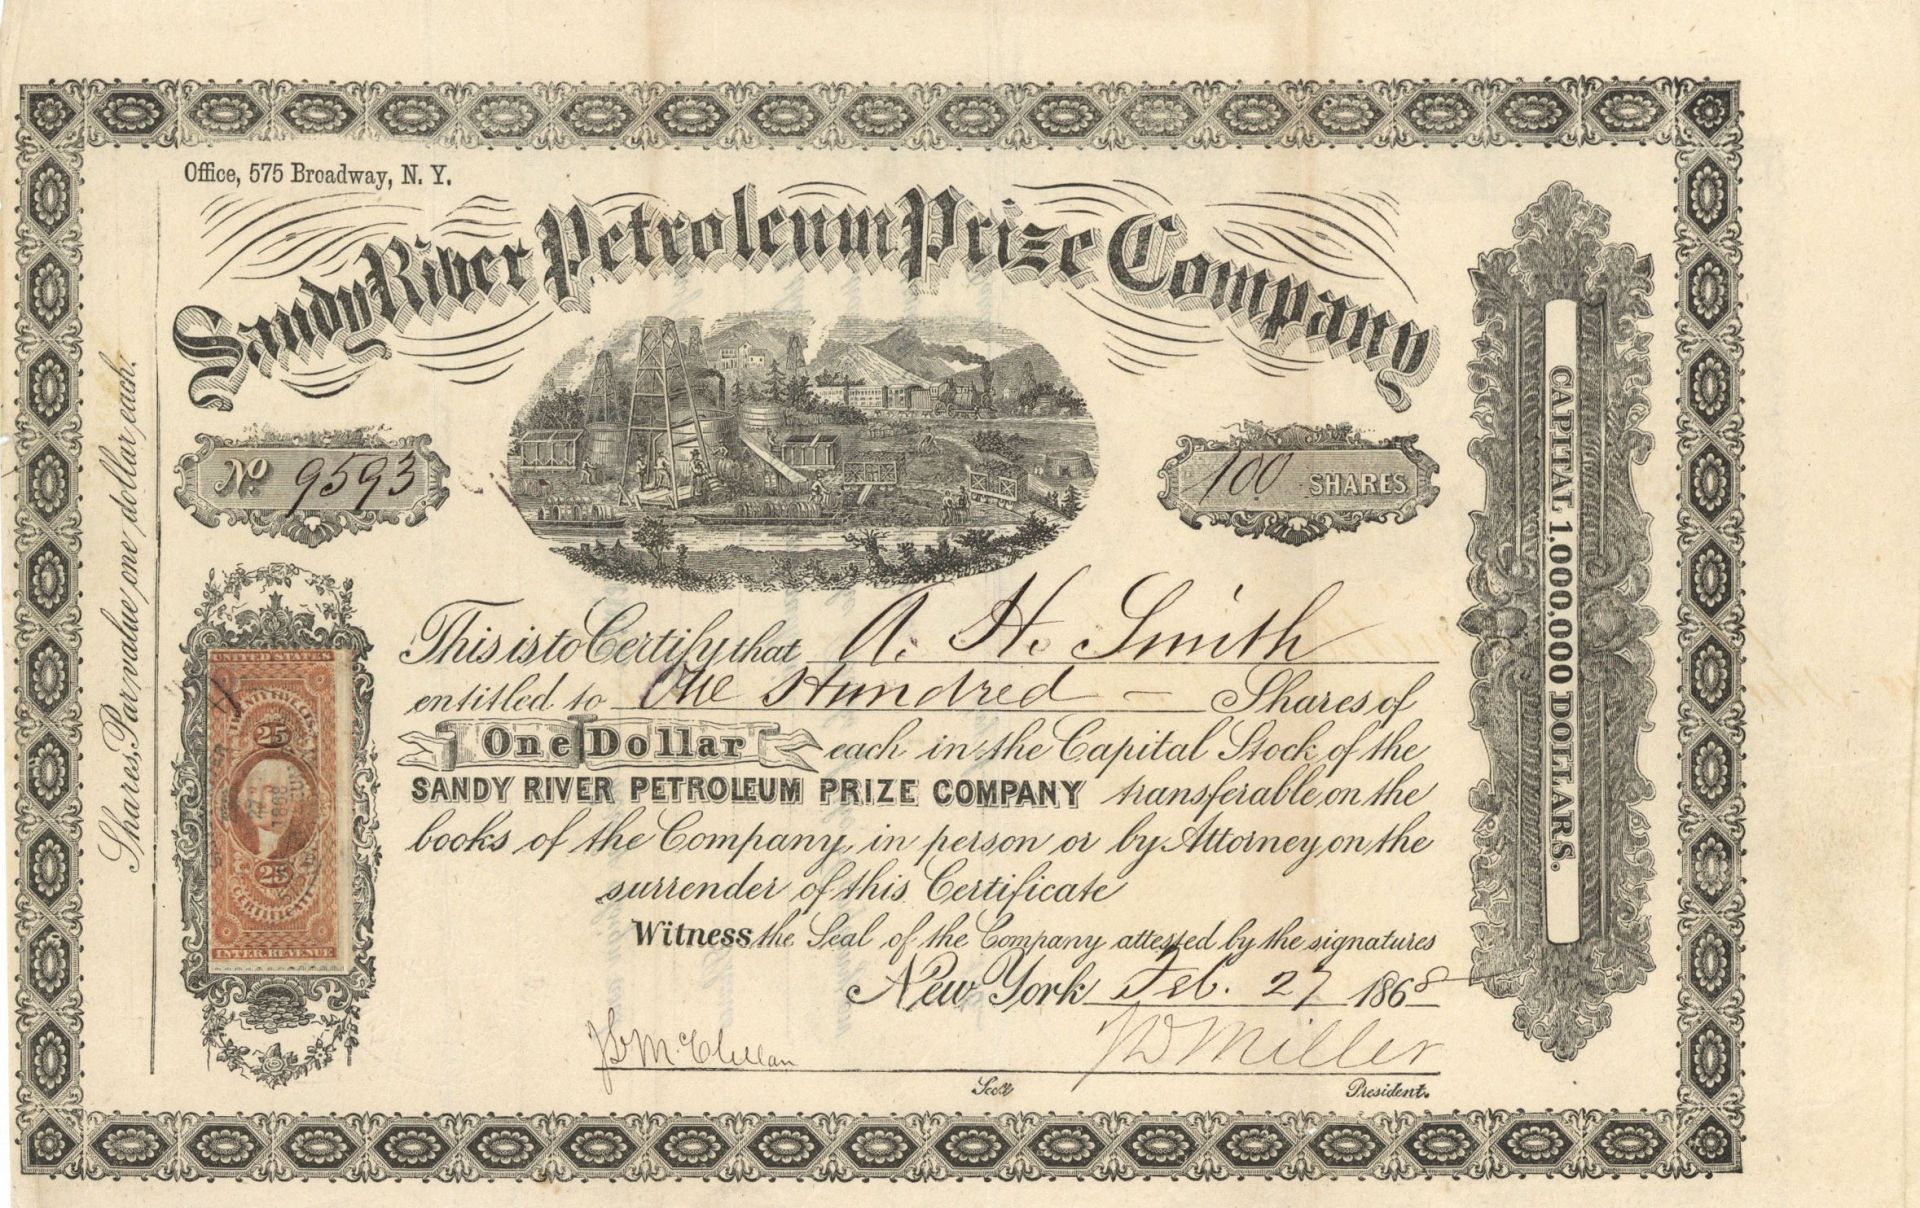 Office, 575 Broadway, N. Y.
Sandy River Petroleum Prize Company
No. 9593
100 SHARES
Shares, Par value, one dollar, each.
CAPITAL 1,000,000 DOLLARS.
UNITED STATES
25
27
1868
25
Certificate
INTER. REVENUE
This is to Certify that A. H. Smith
entitled to One Hundred — Shares of
One Dollar each in the Capital Stock of the
SANDY RIVER PETROLEUM PRIZE COMPANY transferable on the
books of the Company, in person or by Attorney, on the
surrender of this Certificate
Witness the Seal of the Company attested by the signatures
New York Feb. 27 1868
McClellan Miller
Secty President.